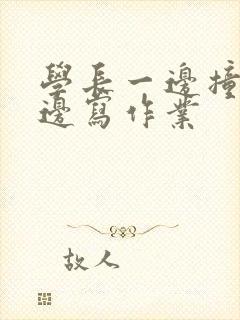 學長一邊撞
邊寫作業
故人